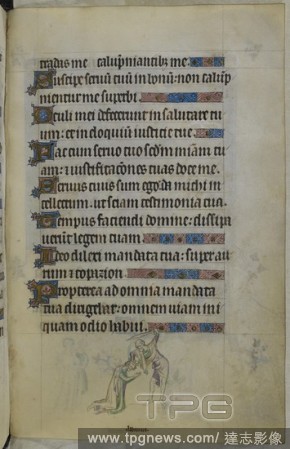 tradas me calūpniantibꝫ me.
Suscipe seruū tuū in bonū: non calūp
nientur me superbi.
Oculi mei defecerunt in salutare tu
um: et in eloquiū iusticie tue.
Fac cum seruo tuo scdm miam tu
am: et iustificacones tuas doce me.
Seruus tuus sum ego da michi in
tellectum. ut sciam testimonia tua.
Tempus faciendi domine: dissipa
uerunt legem tuam.
Ideo dilexi mandata tua: super au
rum et topazion.
Propterea ad omnia mandata
tua dirigebar: omnem uiam ini
quam odio habui.
TPG
www.tpgnews.com/ 達志影像